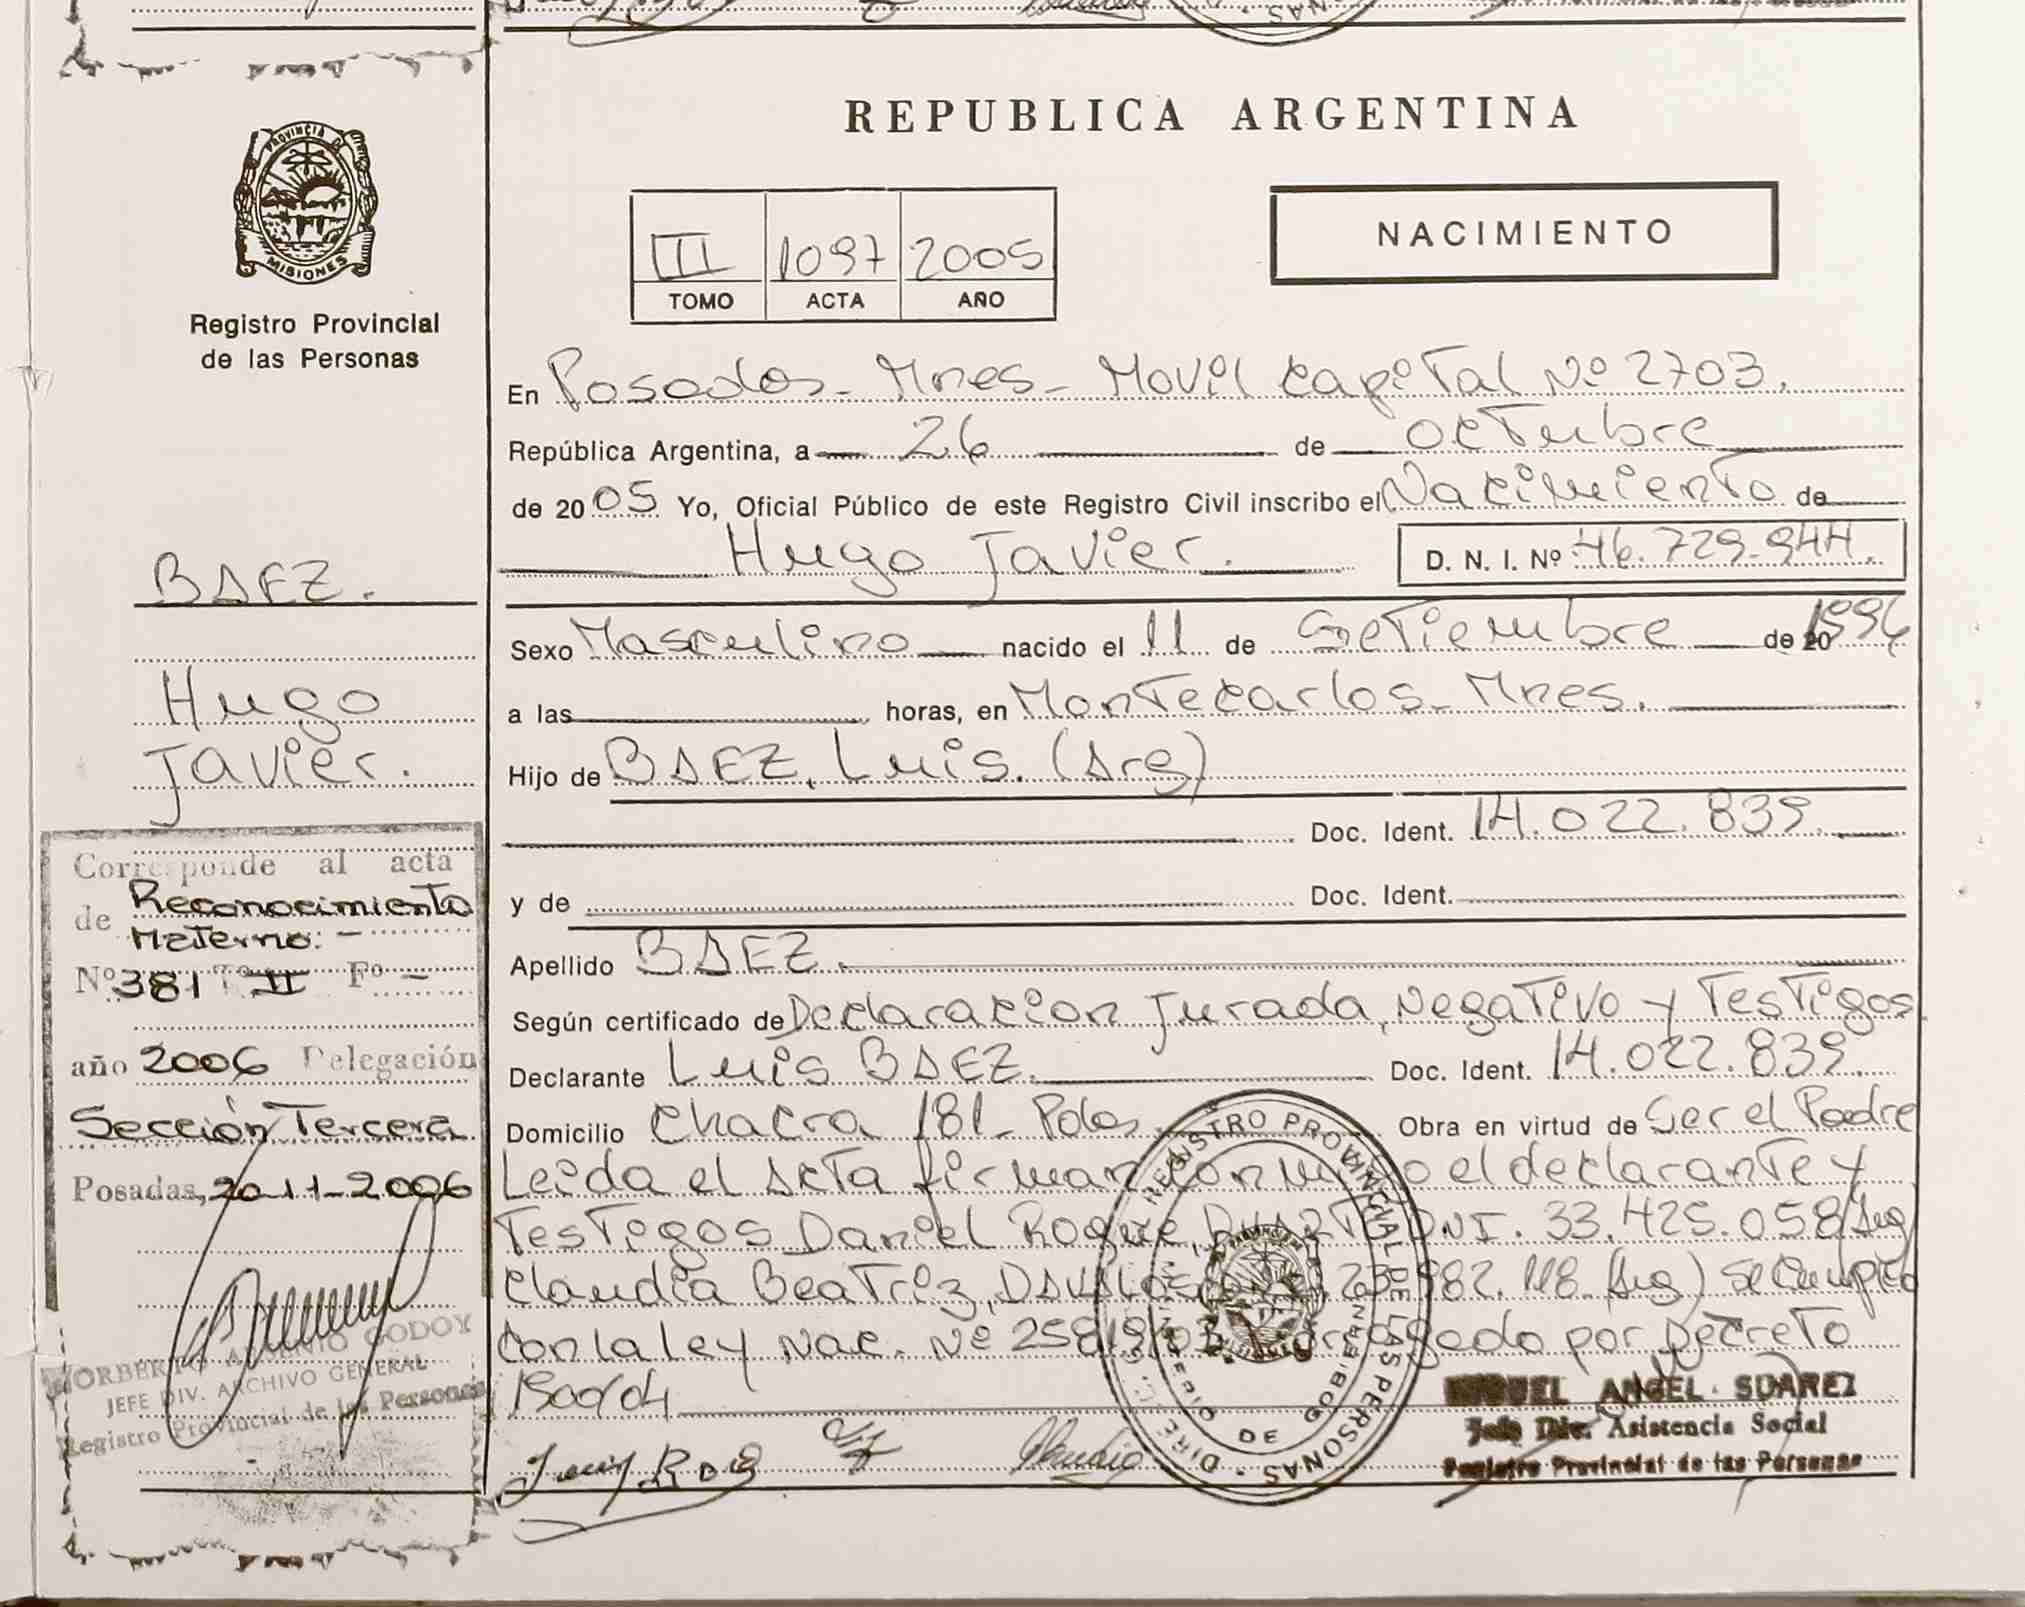 REPUBLICA ARGENTINA
PROVINCIA DE
MISIONES
Registro Provincial
de las Personas
III 1097 2005
TOMO ACTA AÑO
NACIMIENTO
En Posadas - Mnes - Movil Capital Nº 2703.
República Argentina, a 26 de octubre
de 2005 Yo, Oficial Público de este Registro Civil inscribo el Nacimiento de
Hugo Javier. D. N. I. Nº 46.729.944.
Sexo Masculino nacido el 11 de Setiembre de 20 1996
a las horas, en Montecarlos - Mnes.
Hijo de BAEZ, Luis. (Arg)
Doc. Ident. 14.022.839.
y de Doc. Ident.
Apellido BAEZ.
Según certificado de Declaracion Jurada, Negativo y Testigos
Declarante Luis BAEZ. Doc. Ident. 14.022.839.
Domicilio Chacra 181 - Pdas. Obra en virtud de Ser el Padre
Leida el Acta firman conmigo el declarante y
Testigos Daniel Roque, DUARTE DNI. 33.425.058 (Arg)
Claudia Beatriz, DAVALOS 23.982.118 (Arg) se cumplio
con la ley Nac. Nº 25819/03 Prorrogado por Decreto
1500/04
REGISTRO PROVINCIAL DE LAS PERSONAS
MIGUEL ANGEL SUAREZ
Jefe Div. Asistencia Social
Registro Provincial de las Personas
BAEZ.
Hugo
Javier.
Corresponde al acta
de Reconocimiento
Materno. -
Nº 381 Tº II Fº -
año 2006 Delegación
Sección Tercera
Posadas, 20-11-2006
NORBERTO ANTONIO GODOY
JEFE DIV. ARCHIVO GENERAL
Registro Provincial de las Personas